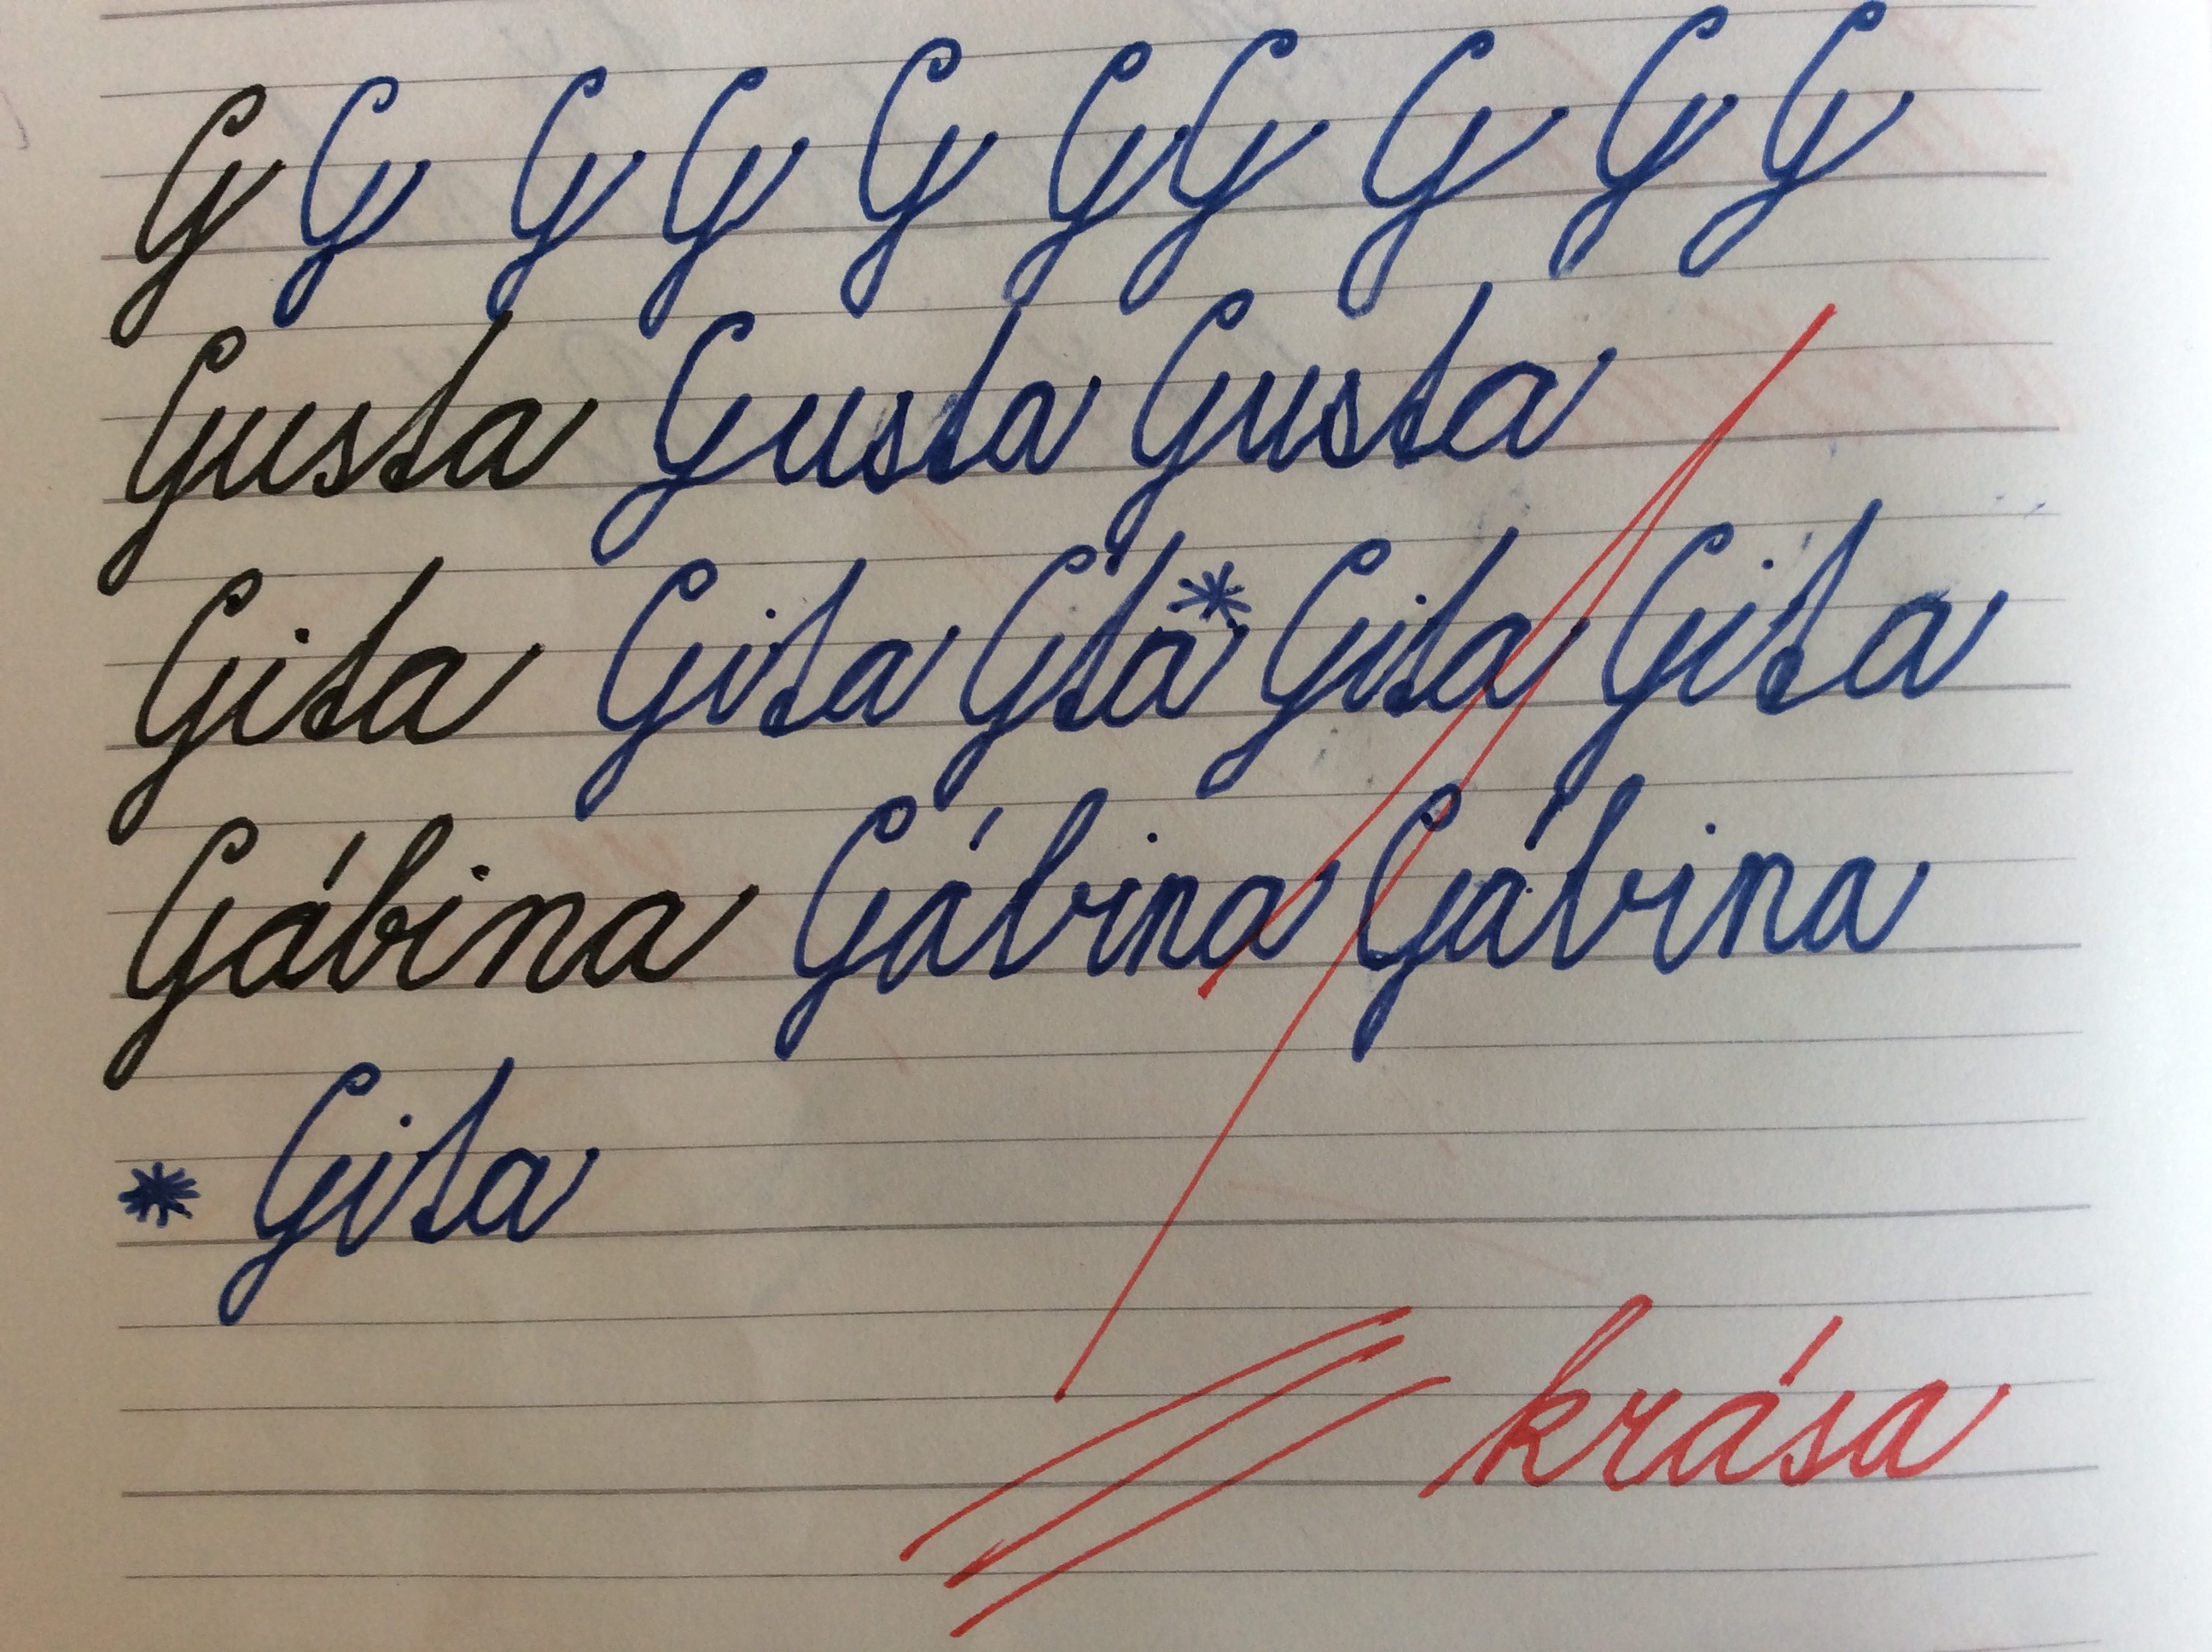 G G G G G G G G G G
Gusta Gusta Gusta
Gita Gita Gta* Gita Gita
Gábina Gábina Gábina
* Gita
krása